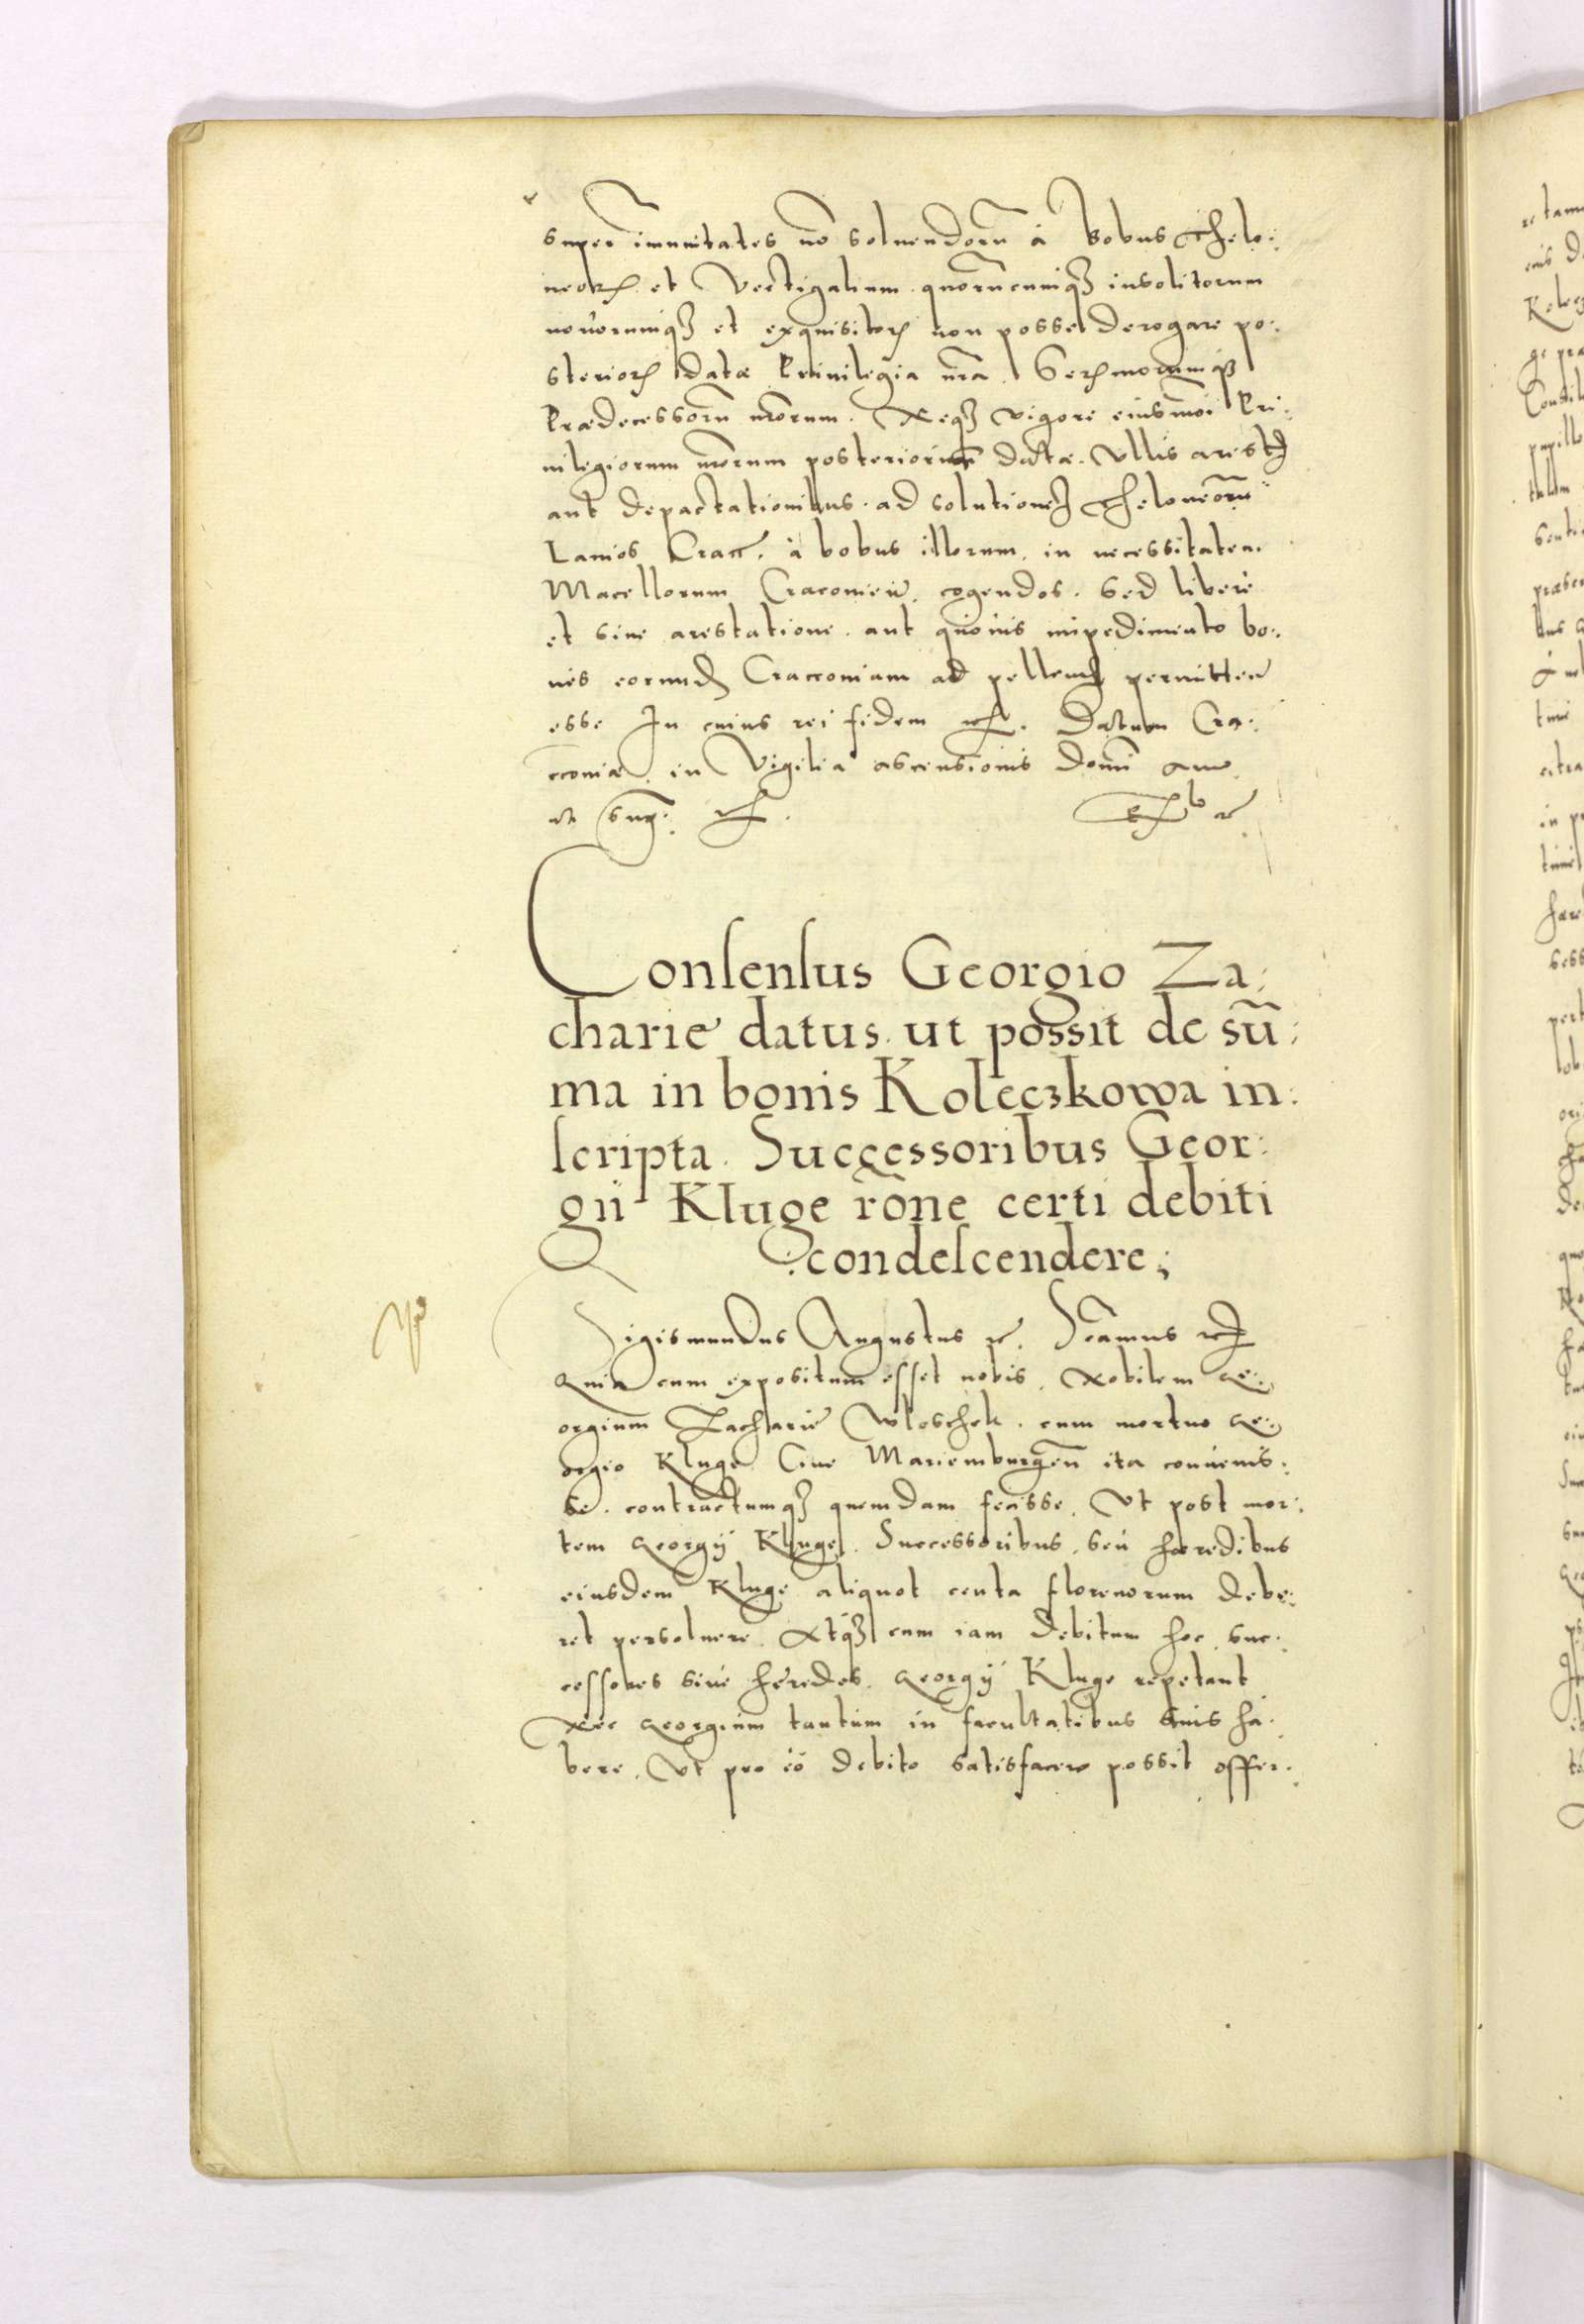 super im̃unitates nõ soluendorũ à bobus Thelo:
neorꝝ et Vectigalium quorũcunqꝫ insolitorum
nouorumqꝫ et exquisitorꝝ non posse derogare po:
steriorꝝ datæ Priuilegia nr̃a Serꝝmorumqꝫ
Prædecessorũ nr̃orum. Neqꝫ vigore eiusmõi Pri:
uilegiorum nr̃orum posteriorum datæ. Vllis arestꝭ
aut depactationibus ad solutionẽ Theloneorũ
Lanios Cracc. à bobus illorum in necessitatem
Macellorum Cracouien̄. cogendos. Sed liberè
et sine arestatione aut quouis impedimento bo:
ues eorundẽ Craccouiam ad pellend permitten̄
esse In cuius rei fidem etc. Datum Cra:
ccouiæ in Vigilia ascensionis Domĩ anno
ut sup: etc.
Consensus Georgio Za:
charie datus ut possit de sũ:
ma in bonis Koleczkowa in:
scripta Successoribus Geor:
gii Kluge rõne certi debiti
condescendere;
Sigismundus Augustus etc. Scãmus etc
Quia cum expositum esset nobis. Nobilem Ge:
orgium Zacharie Wloschek cum mortuo Ge:
orgio Kluge Ciue Mariemburgen̄ ita conuenis:
se. contractumqꝫ quemdam fecisse. Vt post mor:
tem Georgij Kluge. Successoribus seu hæredibus
eiusdem Kluge aliquot centa florenorum debe:
ret persoluere. Atqꝫ cum iam debitum hoc suc:
cessores siue heredes Georgij Kluge repetant
Nec Georgium tantum in facultatibus suis ha:
bere. Vt pro eo debito satisfacere possit offer: